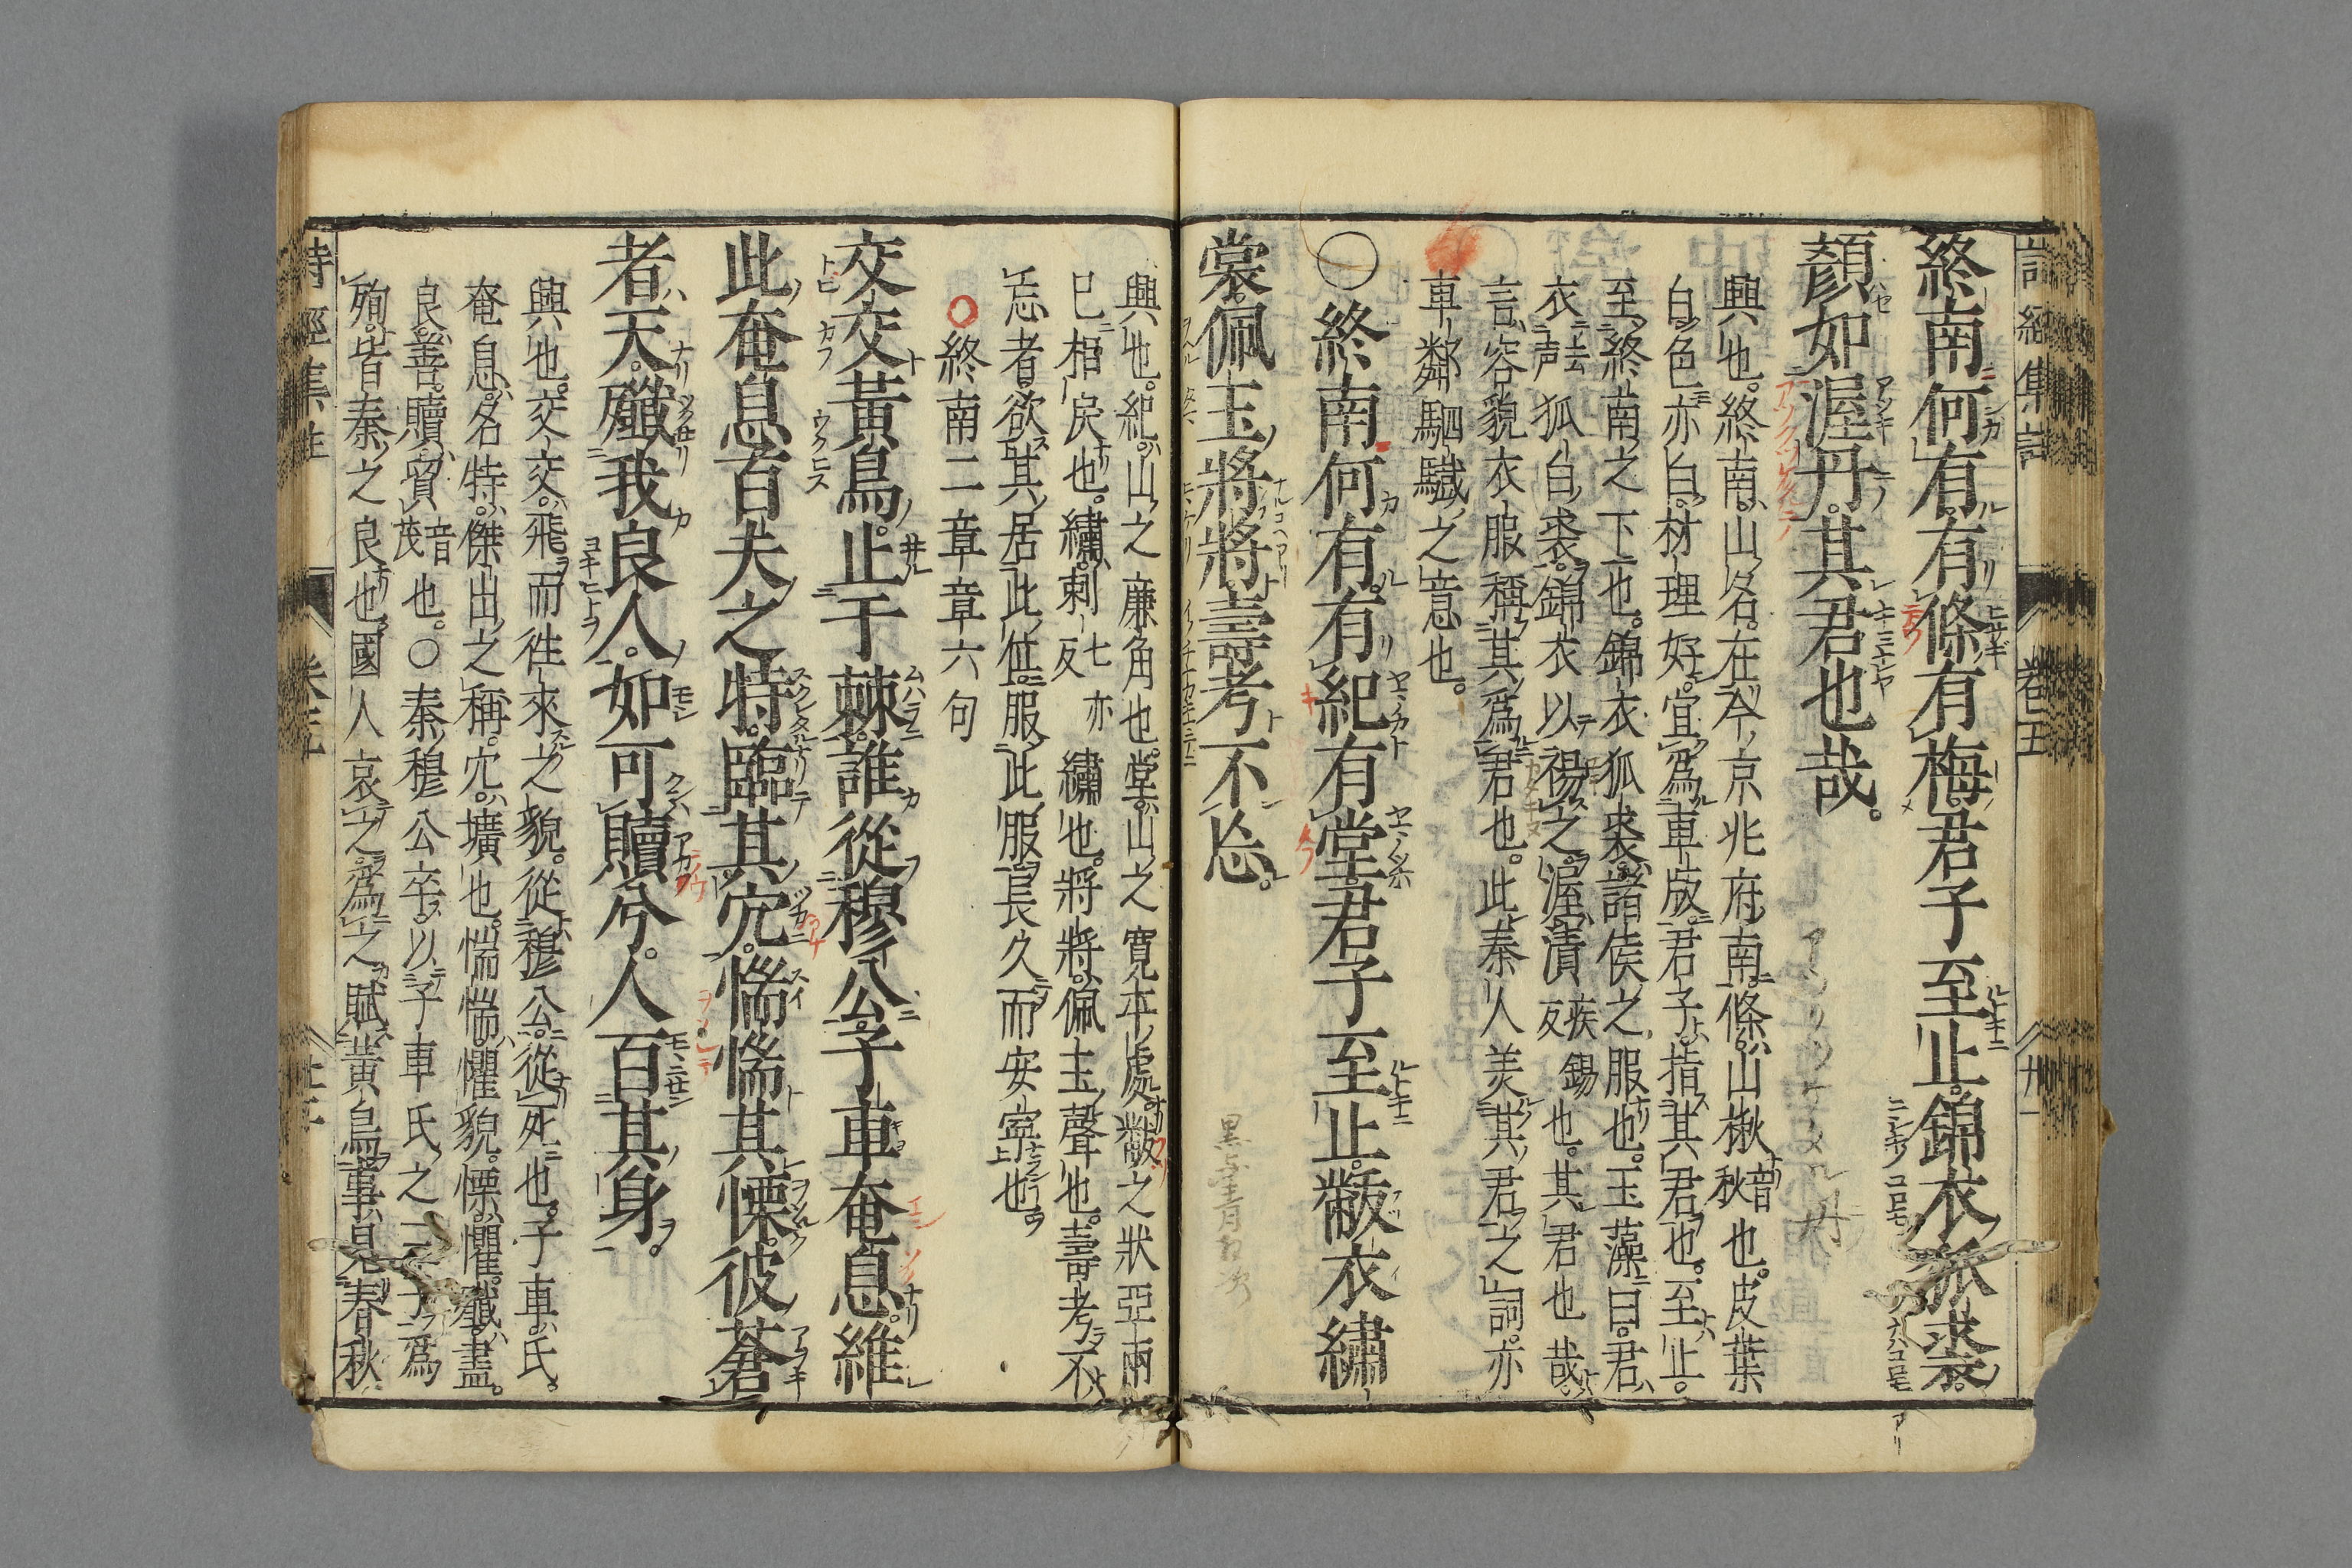 詩經集註 卷五
終南何有。有條有梅。君子至止。錦衣狐裘。
顏如渥丹。其君也哉。
興也。終南。山名。在今京兆府南。條。山楸音秋也。皮葉
白。色亦白。材理好。宜爲車版。君子。指其君也。至止。
至終南之下也。錦衣狐裘。諸侯之服也。玉藻曰。君
衣去声狐白裘。錦衣以裼之。渥。漬疾賜反也。其君也哉。
言容貌衣服稱其爲君也。此秦人美其君之詞。亦
車鄰駟驖之意也。
○終南何有。有紀有堂。君子至止。黻衣繡
裳。佩玉將將。壽考不忘。
興也。紀。山之廉角也。堂。山之寬平處。黻之狀亞兩
已相戾也。繡。刺七亦反繡也。將將。佩玉聲也。壽考不
忘者。欲其居此位。服此服。長久而安寧也。
○終南二章章六句
交交黃鳥。止于棘。誰從穆公。子車奄息。維
此奄息。百夫之特。臨其穴。惴惴其慄。彼蒼
者天。殲我良人。如可贖兮。人百其身。
興也。交交。飛而徃來之貌。從穆公。從死也。子車。氏。
奄息。名。特。傑出之稱。穴。壙也。惴惴。懼貌。慄。懼。殲。盡。
良。善。贖。貿音茂也。○秦穆公卒。以子車氏之三子爲
殉。皆秦之良也。國人哀之。爲之賦黃鳥。事見春秋
詩經集註